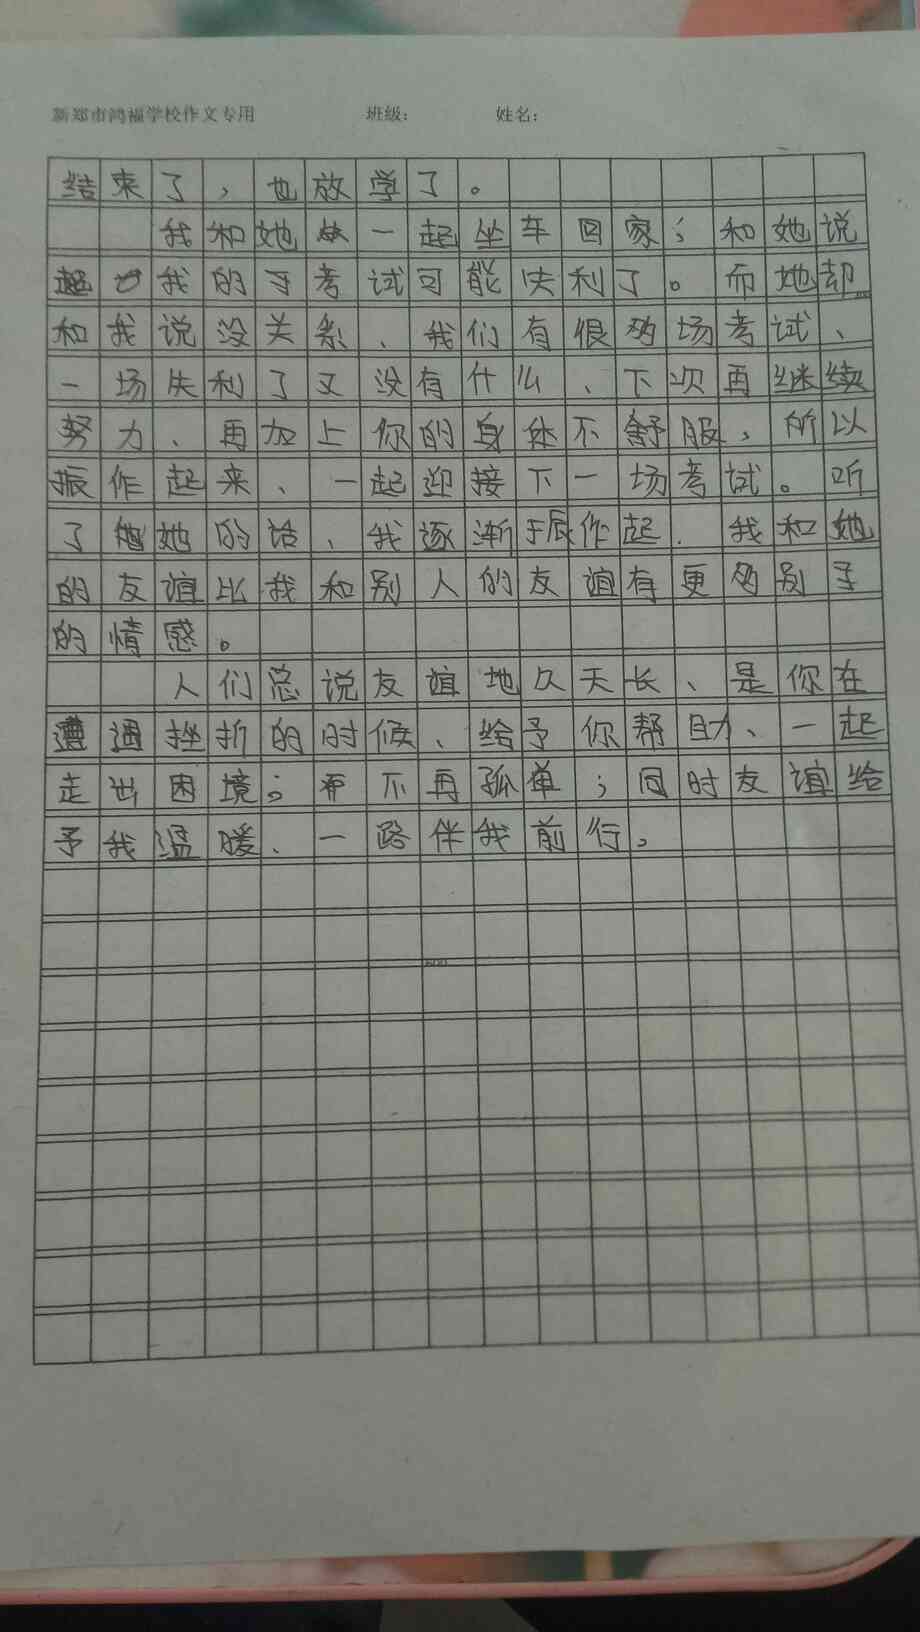 新郑市鸿福学校作文专用 班级： 姓名：
结束了，也放学了。
我和她一起坐车回家；和她说
起我的考试可能失利了。而她却
和我说没关系、我们有很多场考试、
一场失利了又没有什么、下次再继续
努力、再加上你的身体不舒服，所以
振作起来、一起迎接下一场考试。听
了她的话、我逐渐振作起．我和她
的友谊比我和别人的友谊有更多别予
的情感。
人们总说友谊地久天长、是你在
遭遇挫折的时候、给予你帮助、一起
走出困境；不再孤单；同时友谊给
予我温暖、一路伴我前行。